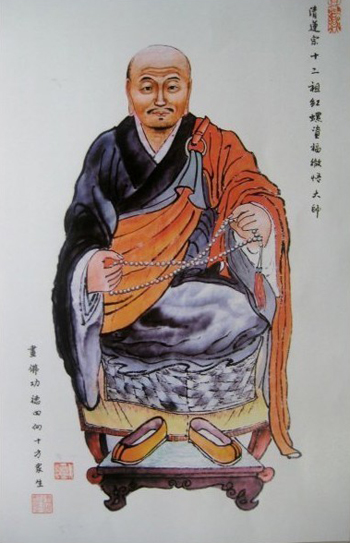 清蓮宗十二祖紅螺資福徹悟大師
畫佛功德回向十方衆生